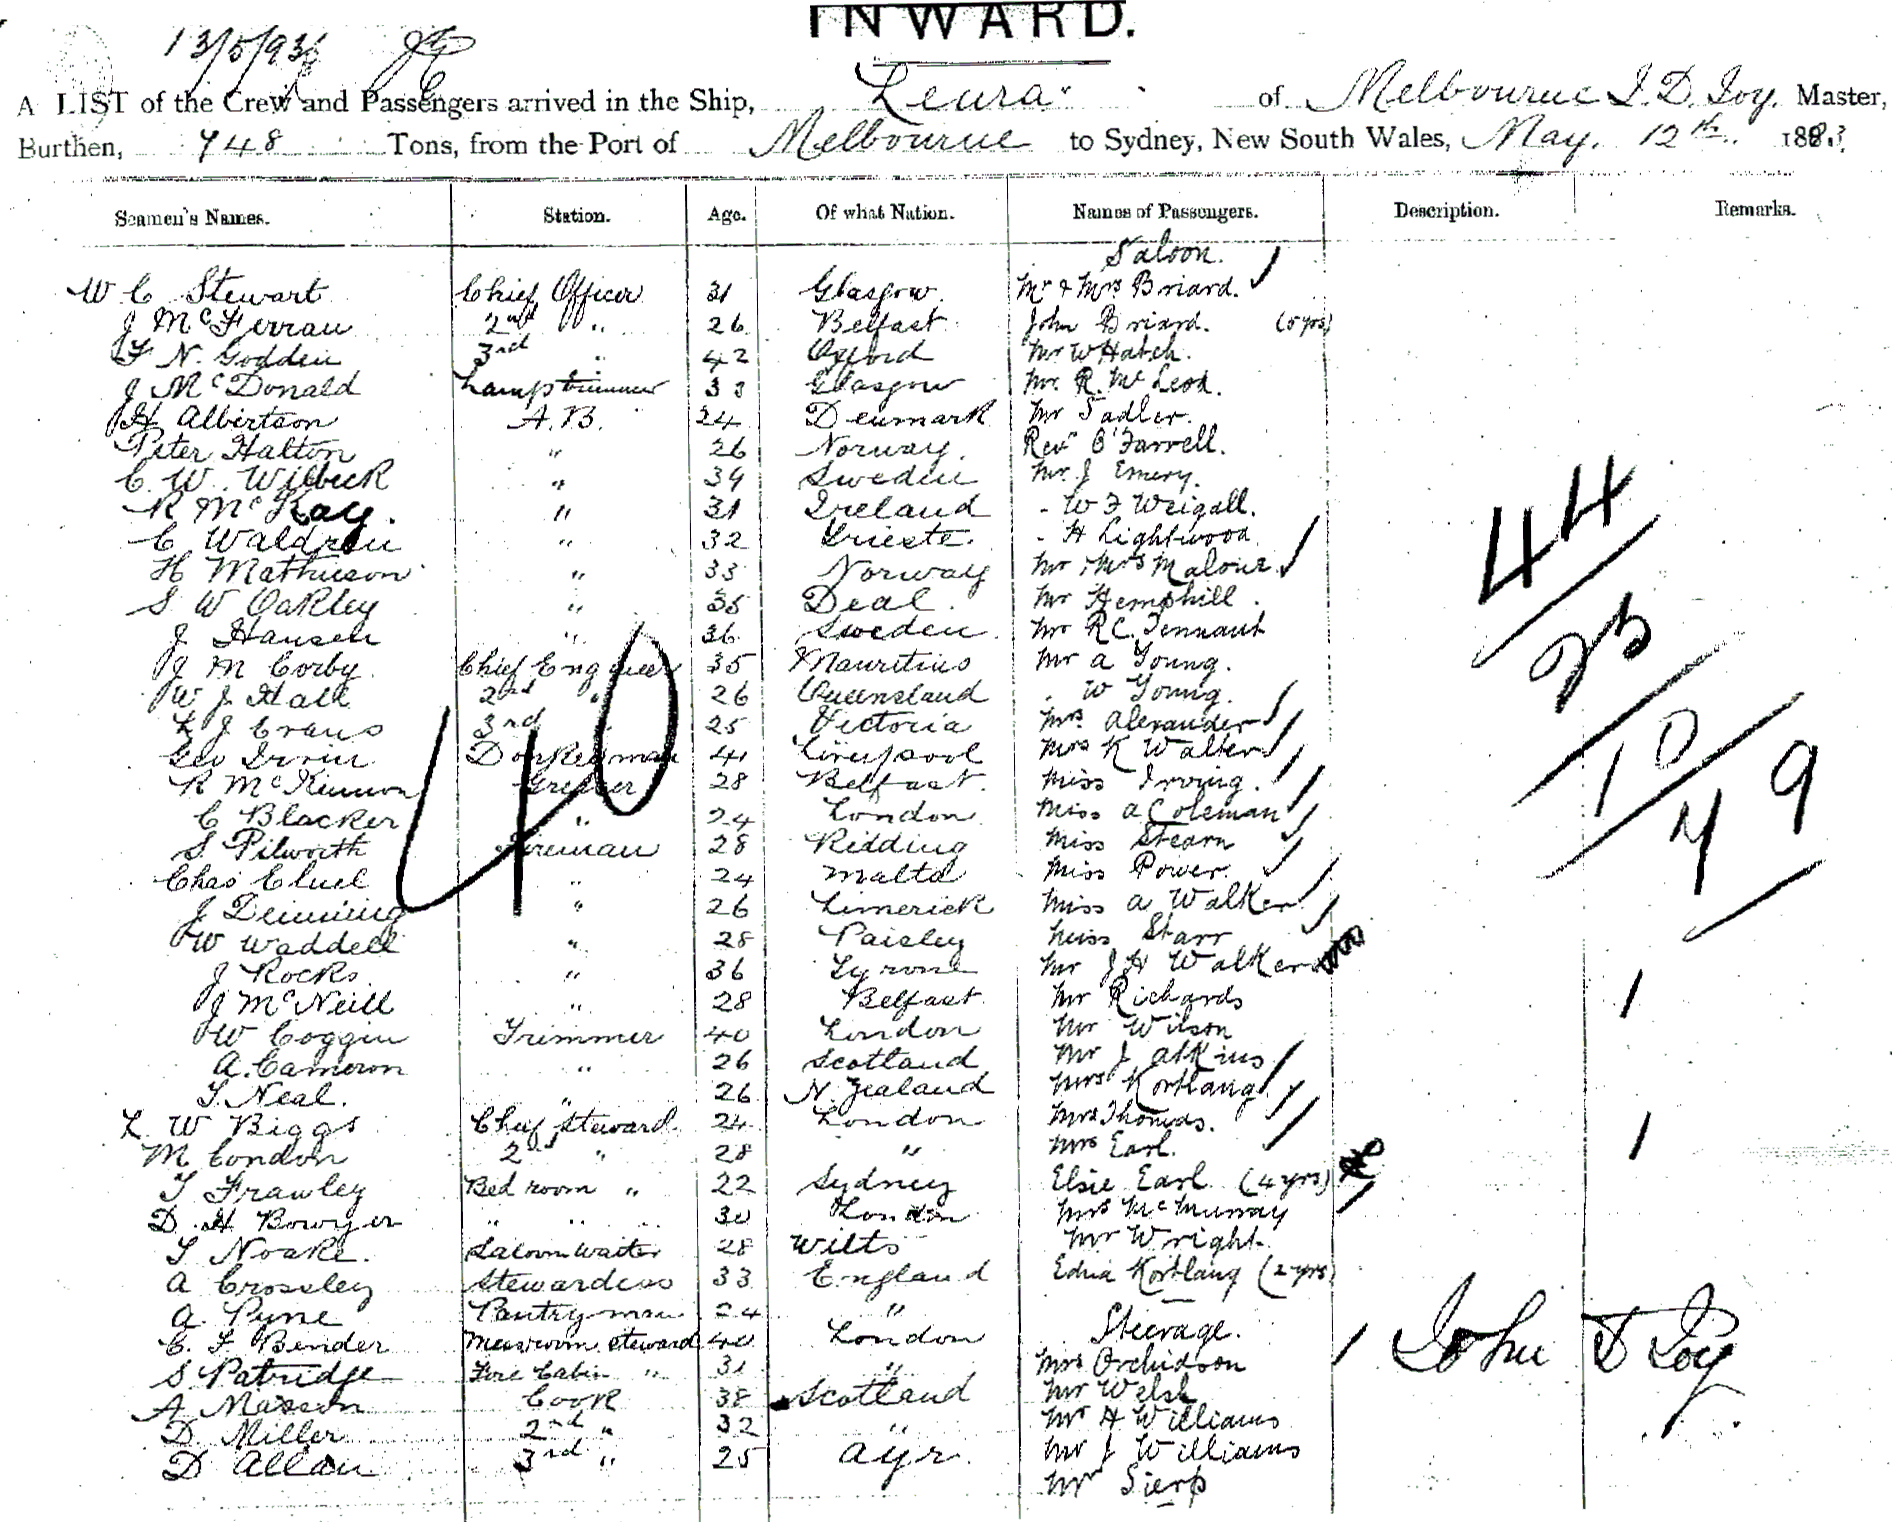 INWARD.
13/5/93
A LIST of the Crew and Passengers arrived in the Ship, Leura of Melbourne J. D. Joy. Master,
Burthen, 748 Tons, from the Port of Melbourne to Sydney, New South Wales, May. 12th. 1893.
Seamen's Names. Station. Age. Of what Nation. Names of Passengers. Description. Remarks.
Saloon.
W C Stewart Chief Officer 31 Glasgow. Mr & Mrs Briard.
J McFerran 2nd " 26 Belfast John Briard. (5 yrs)
F N. Godden 3rd " 42 Oxford Mr W Hatch.
J McDonald Lamptrimmer 33 Glasgow Mr. R. McLeod.
H Albertson A.B. 24 Denmark Mr Sadler.
Peter Halton " 26 Norway. Revd O'Farrell.
C. W. Wilbeck " 34 Sweden Mr. J Emery.
R McKay. " 31 Ireland - W F Weigall.
C Waldren " 32 Trieste. - H Lightwood
H Mathieson " 33 Norway Mr & Mrs Malone
S W Oakley " 35 Deal. Mr Hemphill.
J Hansen " 36 Sweden. Mr R C. Tennant
J M Corby. Chief Engineer 35 Mauritius Mr A Young.
W J Hall 2nd " 26 Queensland - W Young.
L J Evans 3rd " 25 Victoria Mrs Alexander
Geo Irvin Donkeyman 41 Liverpool Mrs K Walter
R McKinnon Greaser 28 Belfast. Miss Irving.
C Blacker " 24 London Miss A Coleman
S. Pilworth Fireman 28 Ridding Miss Stearn
Chas Cluel " 24 Malta Miss Power.
J " 26 Limerick Miss A Walker
W Waddell " 28 Paisley Miss Starr
J Rocks. " 36 Tyrone Mr J H Walker
J McNeill " 28 Belfast. Mr Richards 1
W Coggin Trimmer 40 London Mr Wilson
A. Cameron " 26 Scotland Mr J Atkins
T. Neal. " 26 N. Zealand Mrs Kortlang
L. W Biggs Chief Steward. 24 London Mrs Thomas. 1
M London 2nd " 28 " Mrs Earl.
T Frawley Bed room " 22 Sydney Elsie Earl (4 yrs)
D. H Bowyer " " 30 London Mrs McMurray
T Noake. Saloon Waiter 28 Wilts Mr Wright.
A Crossley Stewardess 33 England Edna Kortlang (2 yrs)
A. Pyne Pantryman 24 " Steerage.
C. F Bender Messroom steward 40 London Mrs Orchidson
S Patridge Fore Cabin " 31 " Mr Welsh
A Masson Cook 38 Scotland Mr H Williams
D. Miller 2nd " 32 " Mr J Williams
D Allan 3rd " 25 Ayr. Mr Sierp
40
44
23
10
49
John D Joy